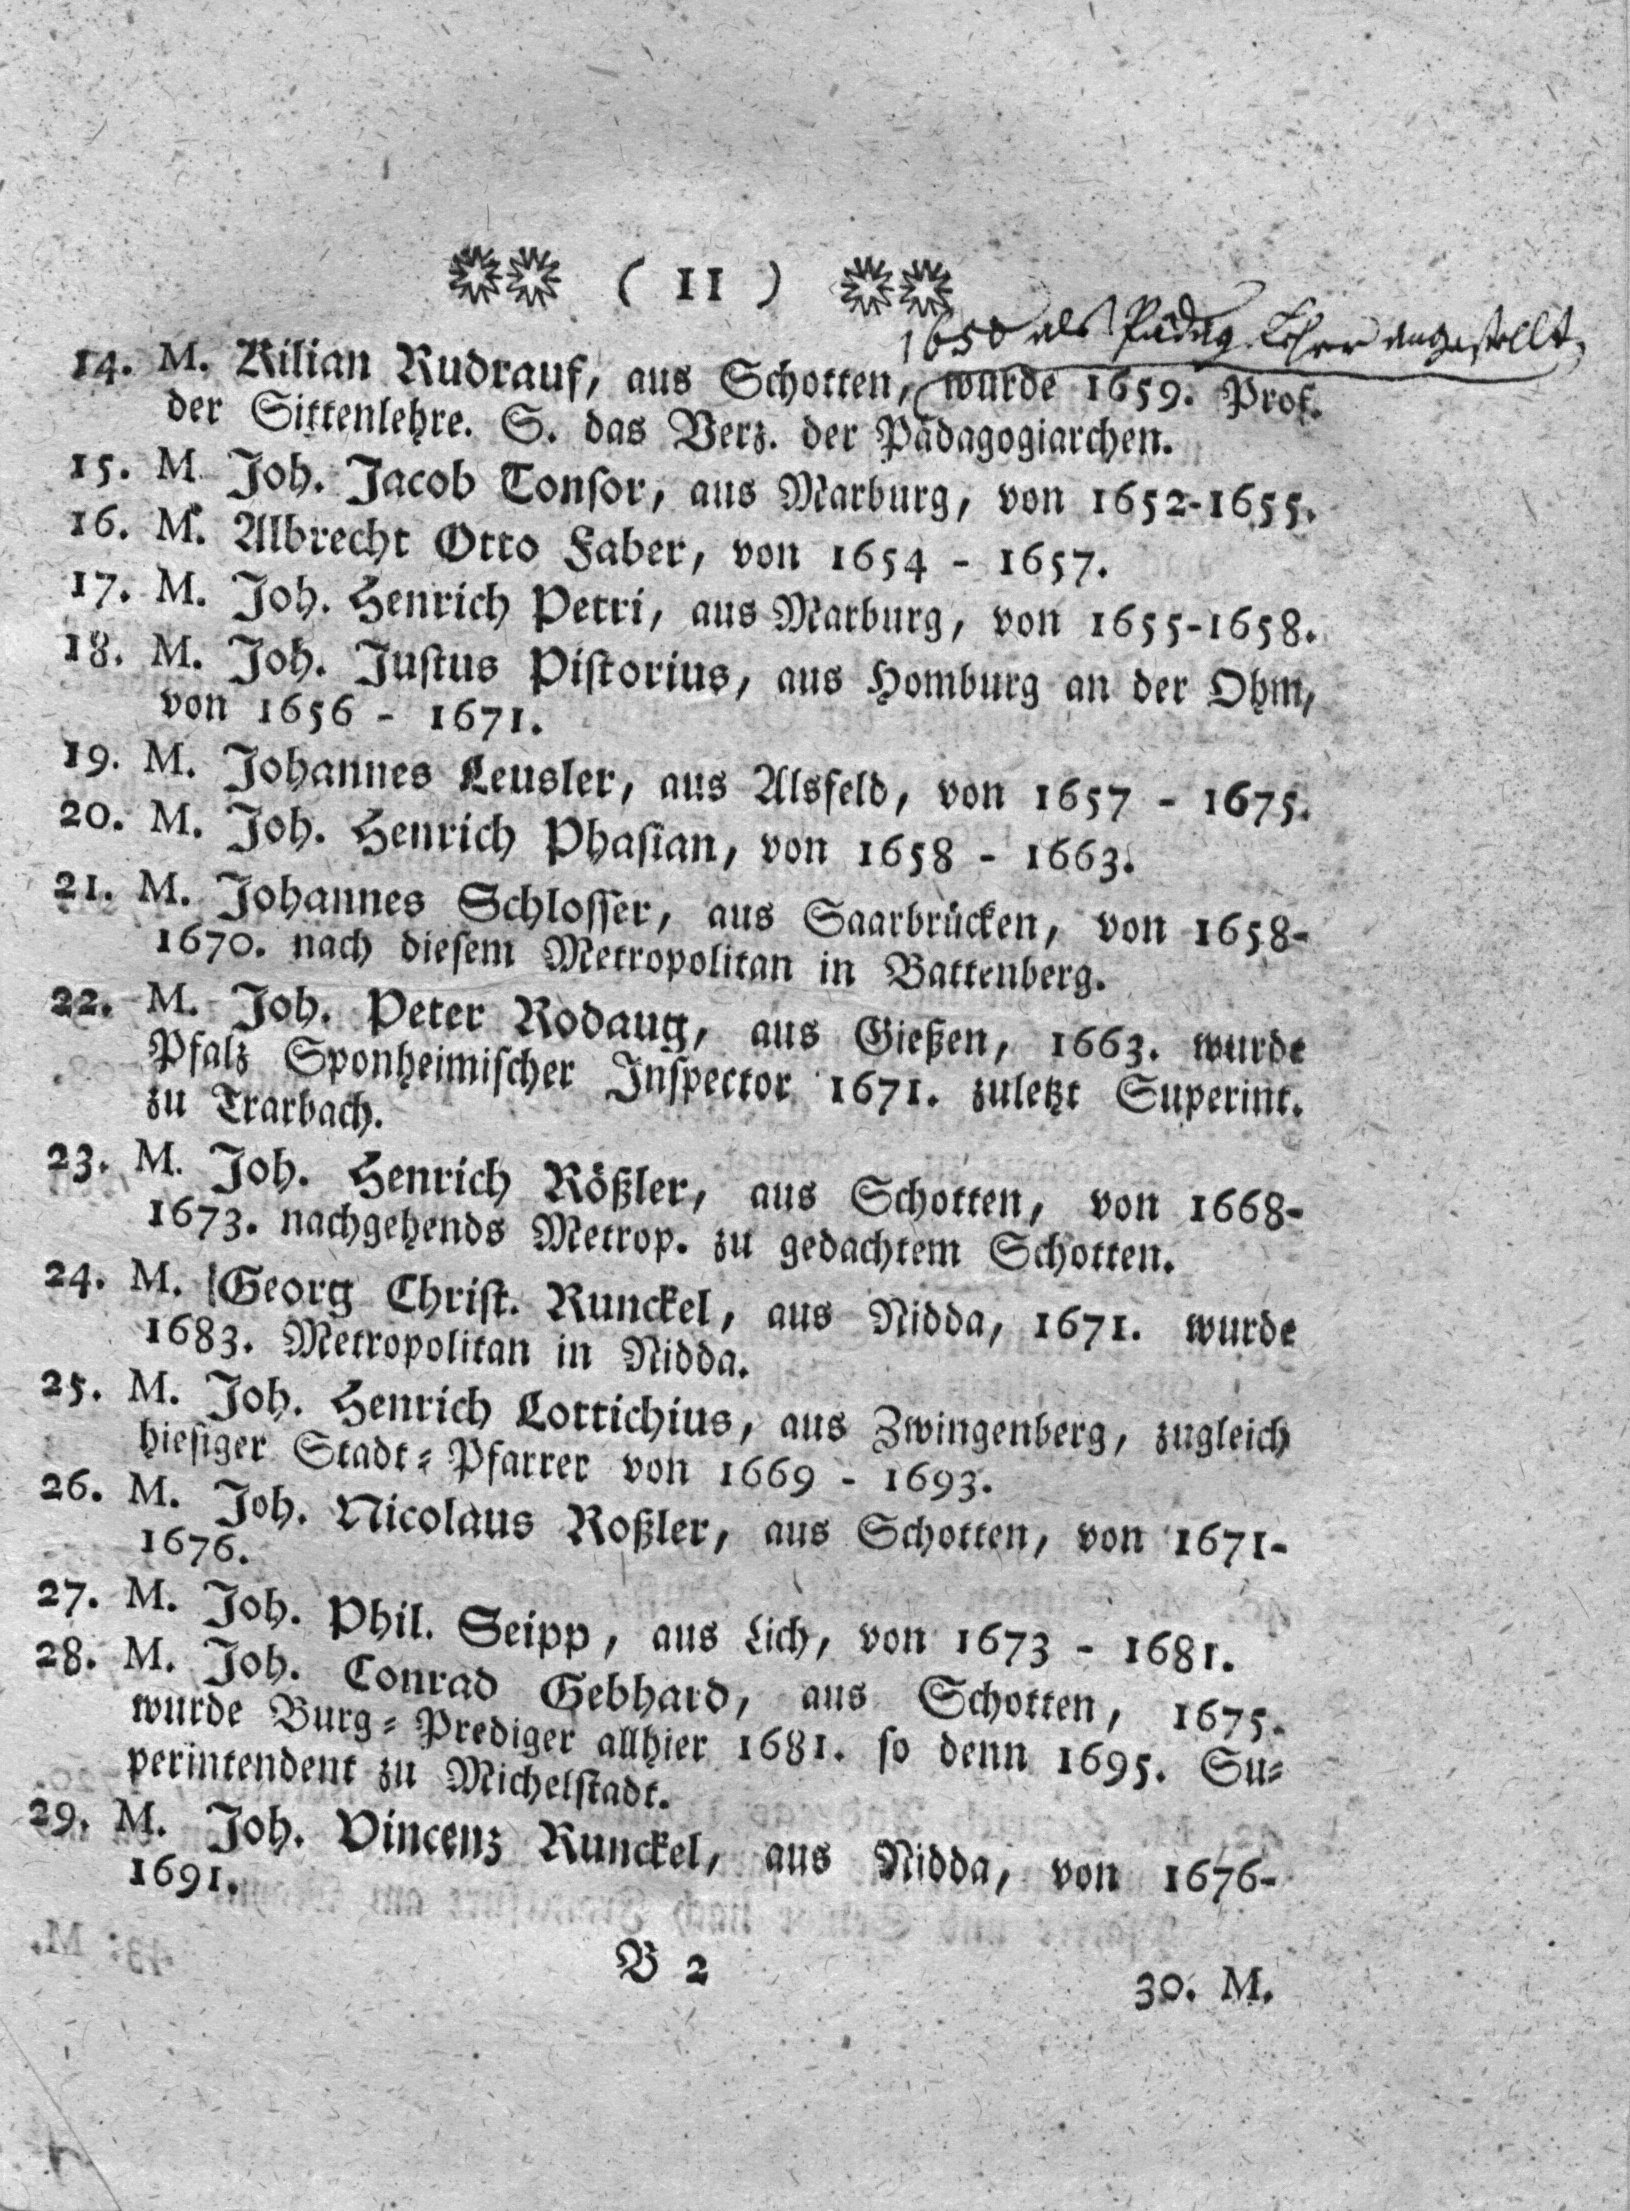 ( 11 )
1650 als Pädag. Lehrer angestellt,
14. M. Kilian Rudrauf, aus Schotten, wurde 1659. Prof.
der Sittenlehre. S. das Verz. der Pädagogiarchen.
15. M. Joh. Jacob Tonsor, aus Marburg, von 1652-1655.
16. M. Albrecht Otto Faber, von 1654 - 1657.
17. M. Joh. Henrich Petri, aus Marburg, von 1655-1658.
18. M. Joh. Justus Pistorius, aus Homburg an der Ohm,
von 1656 - 1671.
19. M. Johannes Leusler, aus Alsfeld, von 1657 - 1675.
20. M. Joh. Henrich Phasian, von 1658 - 1663.
21. M. Johannes Schlosser, aus Saarbrücken, von 1658-
1670. nach diesem Metropolitan in Battenberg.
22. M. Joh. Peter Rodaug, aus Gießen, 1663. wurde
Pfalz Sponheimischer Inspector 1671. zuletzt Superint.
zu Trarbach.
23. M. Joh. Henrich Rößler, aus Schotten, von 1668-
1673. nachgehends Metrop. zu gedachtem Schotten.
24. M. Georg Christ. Runckel, aus Nidda, 1671. wurde
1683. Metropolitan in Nidda.
25. M. Joh. Henrich Lottichius, aus Zwingenberg, zugleich
hiesiger Stadt-Pfarrer von 1669 - 1693.
26. M. Joh. Nicolaus Roßler, aus Schotten, von 1671-
1676.
27. M. Joh. Phil. Seipp, aus Lich, von 1673 - 1681.
28. M. Joh. Conrad Gebhard, aus Schotten, 1675.
wurde Burg-Prediger allhier 1681. so denn 1695. Su-
perintendent zu Michelstadt.
29. M. Joh. Vincenz Runckel, aus Nidda, von 1676-
1691.
B 2
30. M.